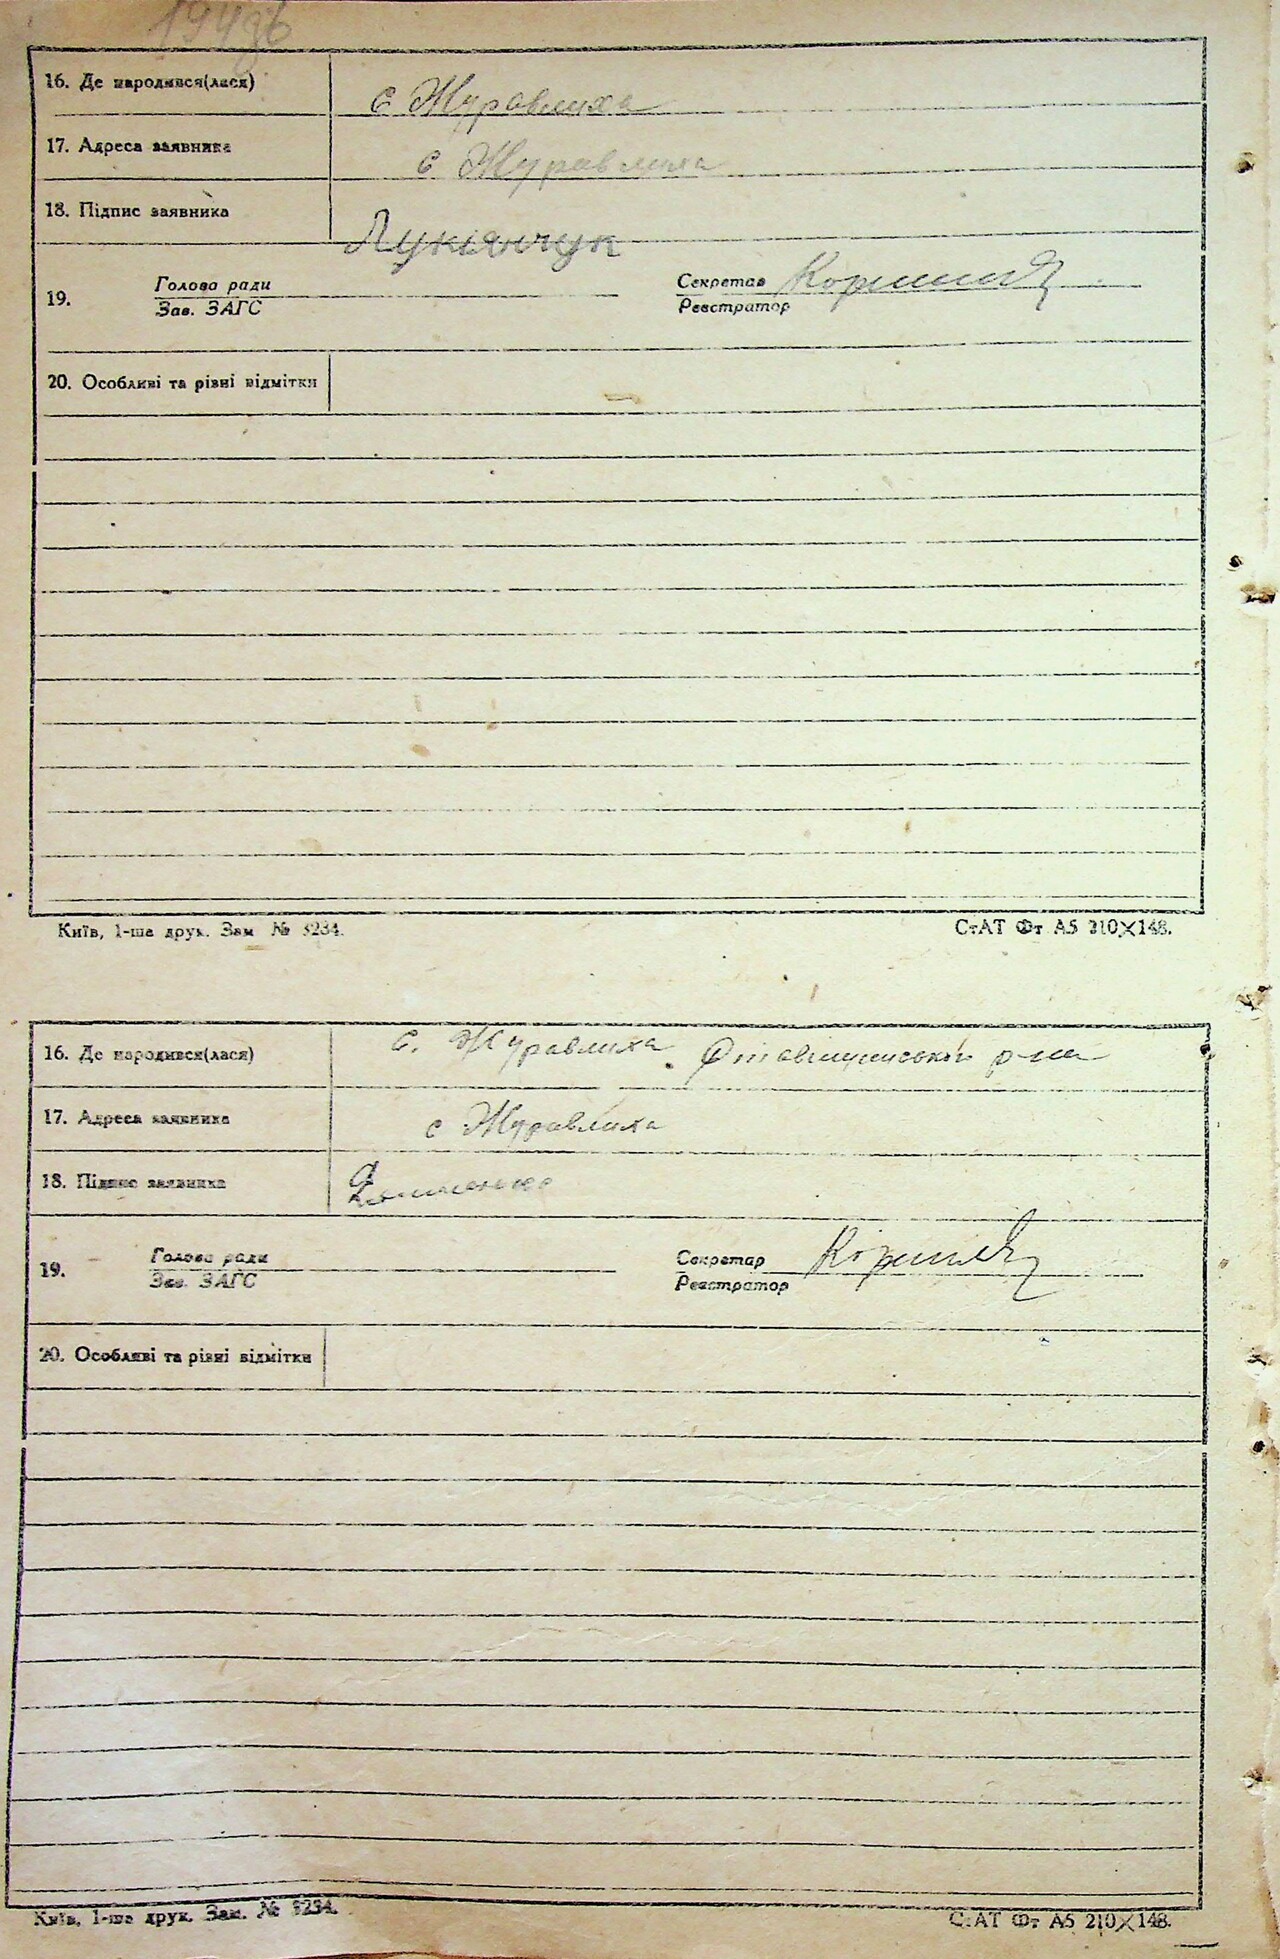 194зв
16. Де народився(лася) с Журавлиха
17. Адреса заявника с Журавлиха
18. Підпис заявника Лукіянчук
19. Голова ради Секретар
Зав. ЗАГС Реєстратор
20. Особливі та різні відмітки
Київ, 1-ша друк. Зам № 5234. СтАТ Фт А5 210×148.
16. Де народився(лася) с. Журавлиха Ставищенський р-на
17. Адреса заявника с Журавлиха
18. Підпис заявника
19. Голова ради Секретар
Зав. ЗАГС Реєстратор
20. Особливі та різні відмітки
Київ, 1-ша друк. Зам. № 5234. СтАТ Фт А5 210×148.